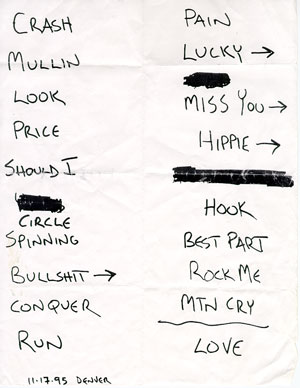 CRASH
MULLIN
LOOK
PRICE
SHOULD I
CIRCLE
SPINNING
BULLSHIT →
CONQUER
RUN
11-17-95 DENVER
PAIN
LUCKY →
MISS YOU →
HIPPIE →
HOOK
BEST PART
ROCK ME
MTN CRY
LOVE